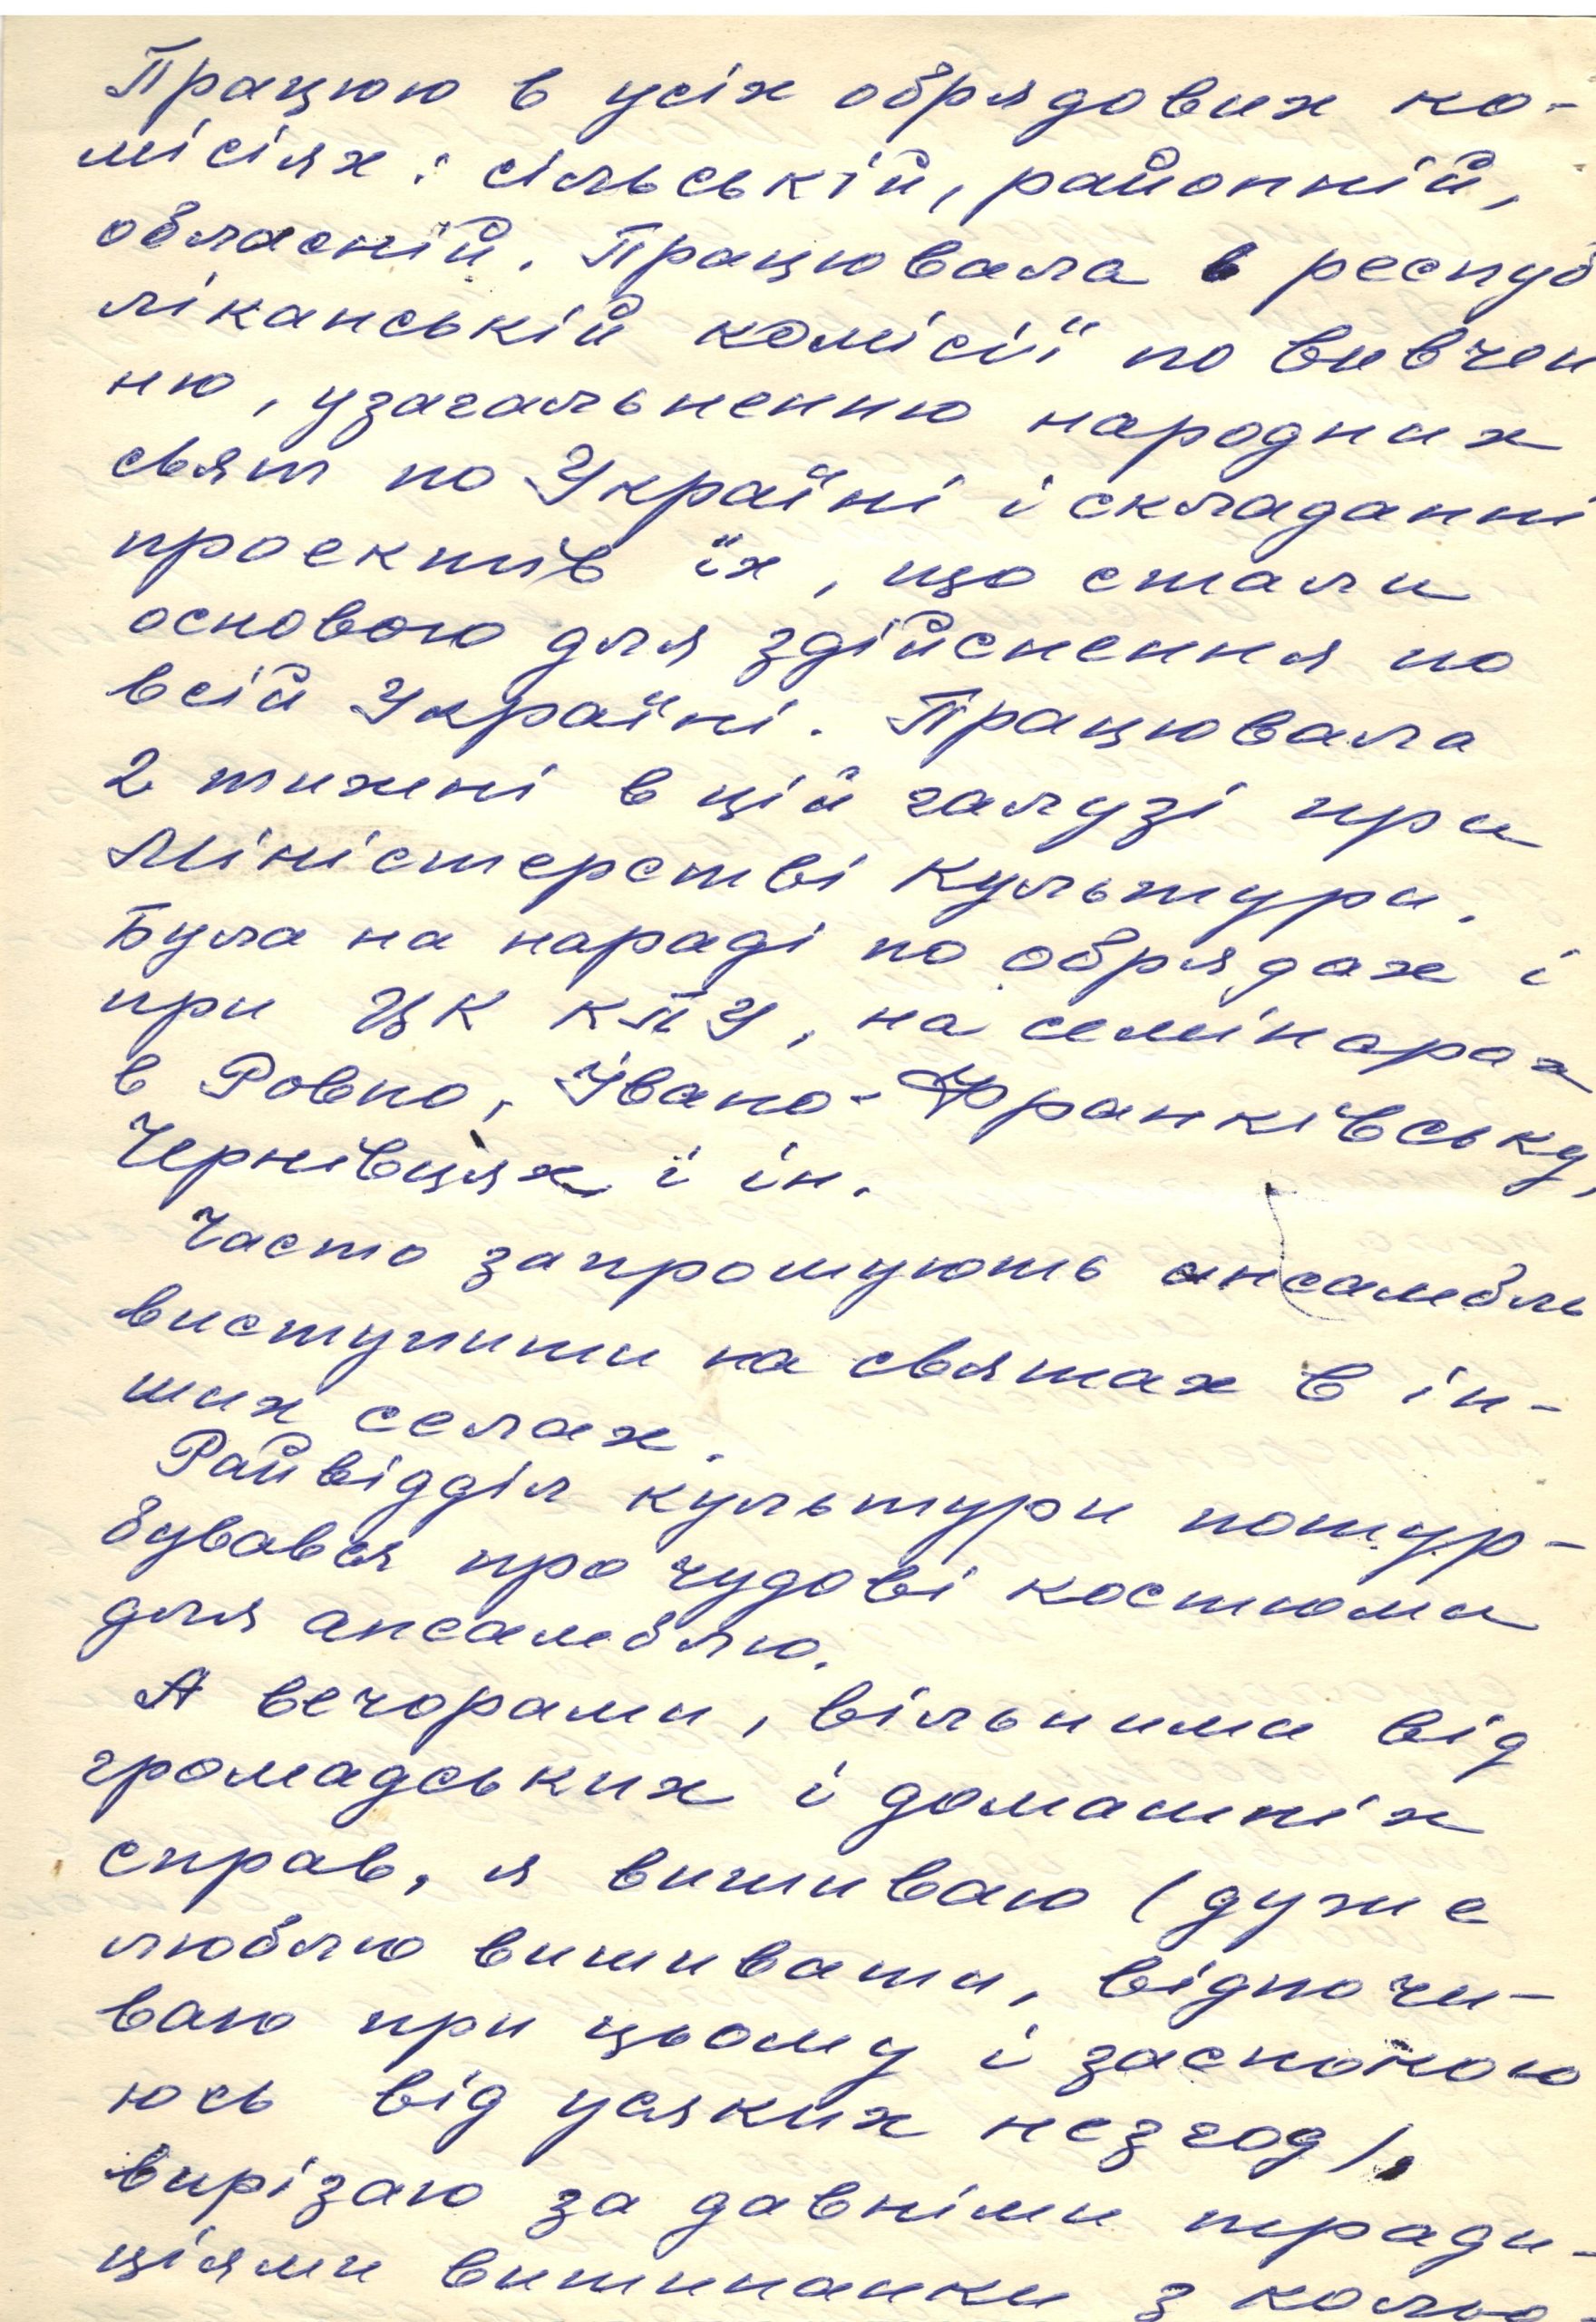 Працюю в усіх обрядових ко-
місіях: сільській, районній,
обласній. Працювала в респуб
ліканській комісії по вивчен
ню, узагальненню народних
свят по Україні і складанні
проектів їх, що стали
основою для здійснення по
всій Україні. Працювала
2 тижні в цій галузі при
Міністерстві культури.
Була на нараді по обрядах і
при ЦК КПУ, на семінарах
в Ровно, Івано-Франківську,
Чернівцях і ін.
Часто запрошують ансамбль
виступити на святах в ін-
ших селах.
Райвідділ культури потур-
бувався про чудові костюми
для ансамблю.
А вечорами, вільними від
громадських і домашніх
справ, я вишиваю (дуже
люблю вишивати, відпочи-
ваю при цьому і заспокою
юсь від усяких незгод),
вирізаю за давніми тради-
ціями витинанки з кольо